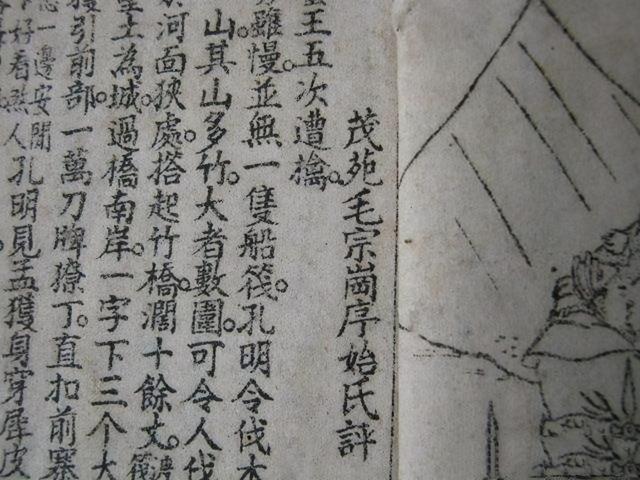 茂苑毛宗崗序始氏評
王五次遭擒。
雖慢。並無一隻船筏。孔明令伐木
山。其山多竹。大者數圍。可令人伐
河面狹處。搭起竹橋。濶十餘丈。
土為城。過橋南岸。一字下三个大
獲引前部。一萬刀牌獠丁。直扣前寨
一邊安閒
好看煞人
孔明見孟獲身穿犀皮